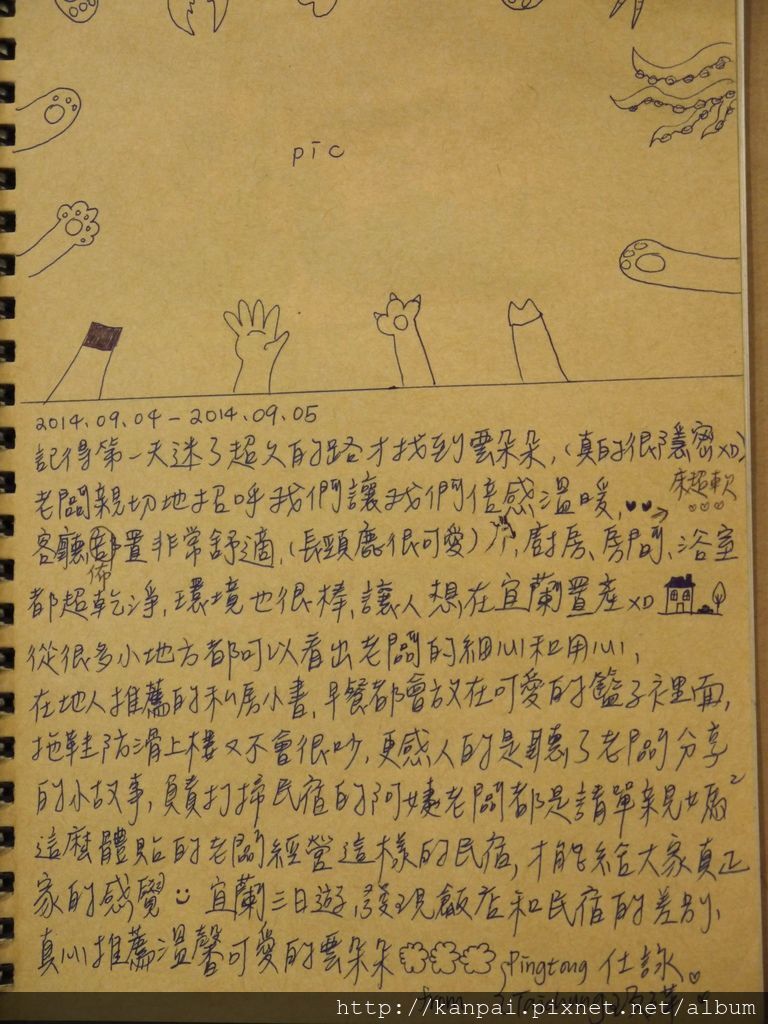 pic
2014.09.04 – 2014.09.05
記得第一天迷了超久的路才找到雲朵朵,(真的很隱密XD)
老闆親切地招呼我們讓我們倍感溫暖,
床超軟
客廳佈置非常舒適,(長頸鹿很可愛),廚房、房間、浴室
都超乾淨,環境也很棒,讓人想在宜蘭置產XD
從很多小地方都可以看出老闆的細心和用心,
在地人推薦的私房小書,早餐都會放在可愛的籃子裡面,
拖鞋防滑上樓又不會很吵,更感人的是聽了老闆分享
的小故事,負責打掃民宿的阿姨老闆都是請單親媽2
這麼體貼的老闆經營這樣的民宿,才能給大家真正
家的感覺 宜蘭三日遊,發現飯店和民宿的差別,
真心推薦溫馨可愛的雲朵朵 Pingtong 仕詠
from Taichung
http://kanpai.pixnet.net/album